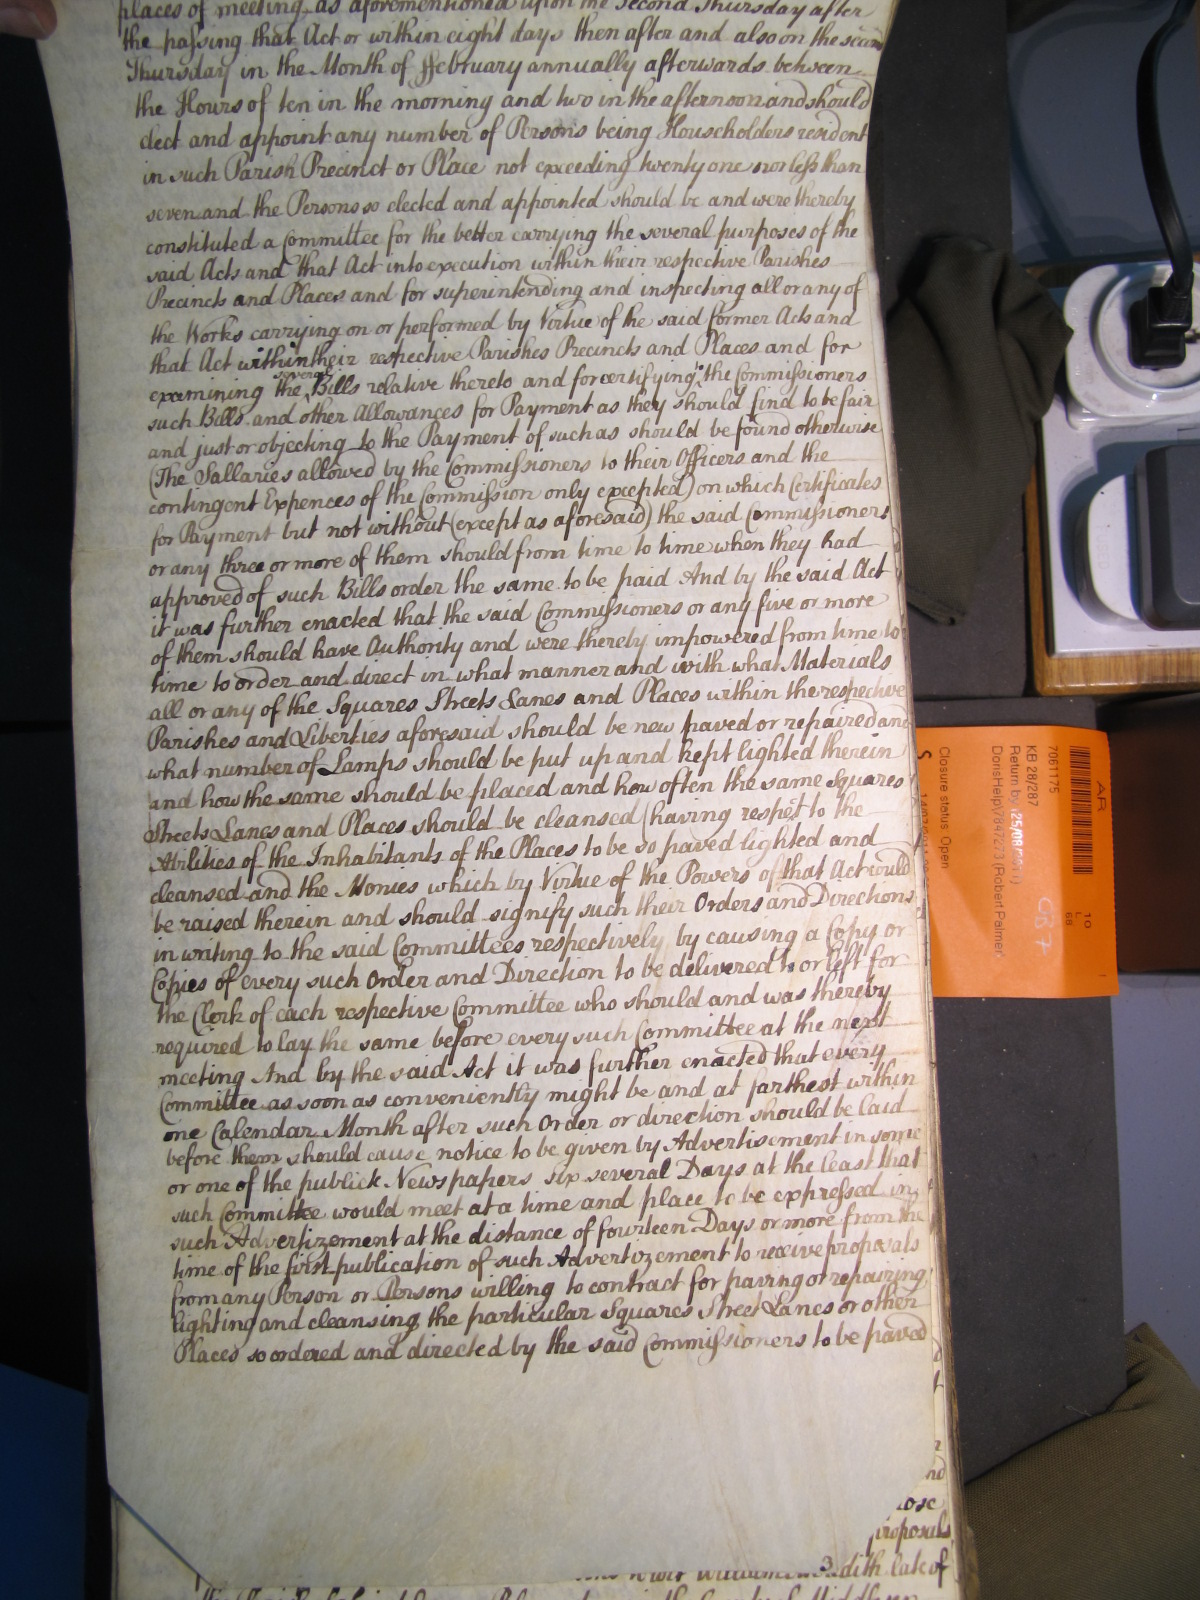 places of meeting as aforementioned upon the Second Thursday after
the passing that Act or within eight days then after and also on the second
Thursday in the Month of ffebruary annually afterwards between
the Hours of ten in the morning and two in the afternoon and should
elect and appoint any number of Persons being Householders resident
in such Parish Precinct or Place not exceeding twenty one nor less than
seven and the Persons so elected and appointed should be and were thereby
constituted a Committee for the better carrying the several purposes of the
said Acts and that Act into execution within their respective Parishes
Precincts and Places and for superintending and inspecting all or any of
the Works carrying on or performed by Virtue of the said former Acts and
that Act within their respective Parishes Precincts and Places and for
examining the several Bills relative thereto and for certifying to the Commissioners
such Bills and other Allowances for Payment as they should find to be fair
and just or objecting to the Payment of such as should be found otherwise
(The Sallaries allowed by the Commissioners to their Officers and the
contingent Expences of the Commission only excepted) on which Certificates
for Payment but not without (except as aforesaid) the said Commissioners
or any three or more of them should from time to time when they had
approved of such Bills order the same to be paid And by the said Act
it was further enacted that the said Commissioners or any five or more
of them should have Authority and were thereby impowered from time to
time to order and direct in what manner and with what Materials
all or any of the Squares Streets Lanes and Places within the respective
Parishes and Liberties aforesaid should be new paved or repaired and
what number of Lamps should be put up and kept lighted therein
and how the same should be placed and how often the same Squares
Streets Lanes and Places should be cleansed (having respect to the
Abilities of the Inhabitants of the Places to be so paved lighted and
cleansed and the Monies which by Virtue of the Powers of that Act could
be raised therein and should signify such their Orders and Directions
in writing to the said Committees respectively by causing a Copy or
Copies of every such Order and Direction to be delivered to or left for
the Clerk of each respective Committee who should and was thereby
required to lay the same before every such Committee at the next
meeting And by the said Act it was further enacted that every
Committee as soon as conveniently might be and at farthest within
one Calendar Month after such Order or direction should be laid
before them should cause notice to be given by Advertisement in some
or one of the publick Newspapers six several Days at the least that
such Committee would meet at a time and place to be expressed in
such Advertizement at the distance of fourteen Days or more from the
time of the first publication of such Advertizement to receive proposals
from any Person or Persons willing to contract for paving or repairing
lighting and cleansing the particular Squares Street Lanes or other
Places so ordered and directed by the said Commissioners to be paved
proposals
3
dith late of
AR
7061175
KB 28/287
Return by (25/08/2011)
DorisHelp\7847273 (Robert Palmer)
Closure status: Open
S
10
L
68